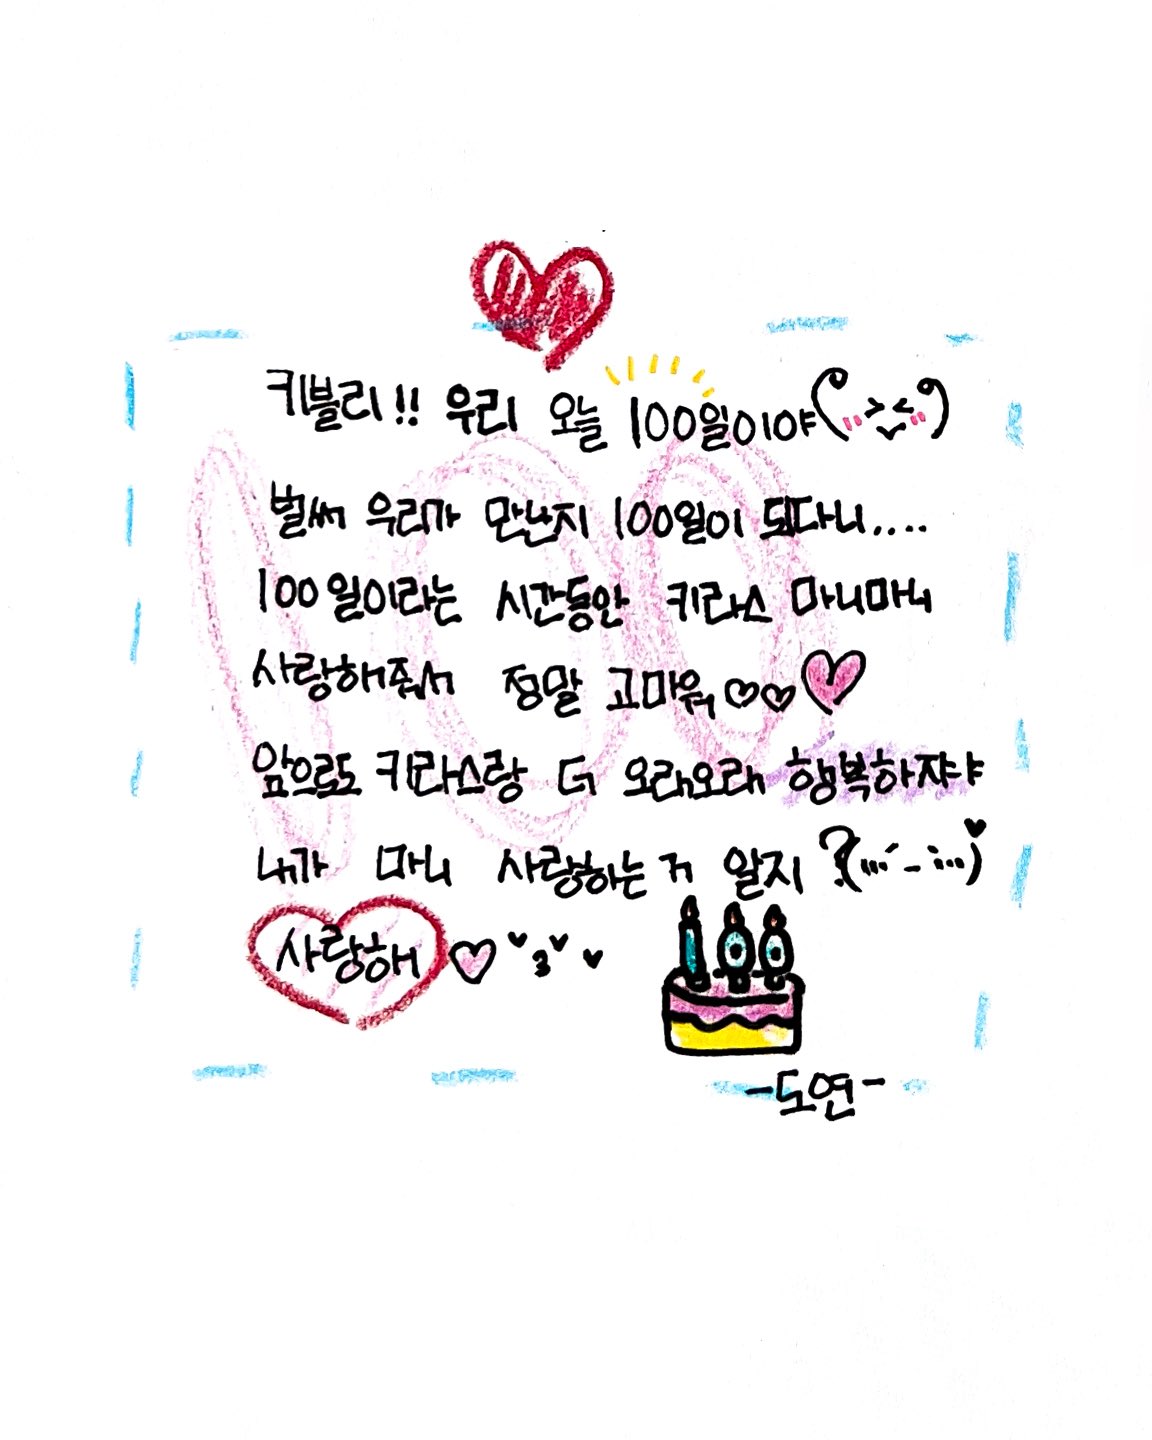 키블리!! 우리 오늘 100일이야
벌써 우리가 만난지 100일이 되다니....
100일이라는 시간동안 키라스 마니마니
사랑해줘서 정말 고마워 ♡♡♡
앞으로도 키라스랑 더 오래오래 행복하쟈냐
내가 마니 사랑하는 거 알지?
사랑해 ♡
100
-도연-